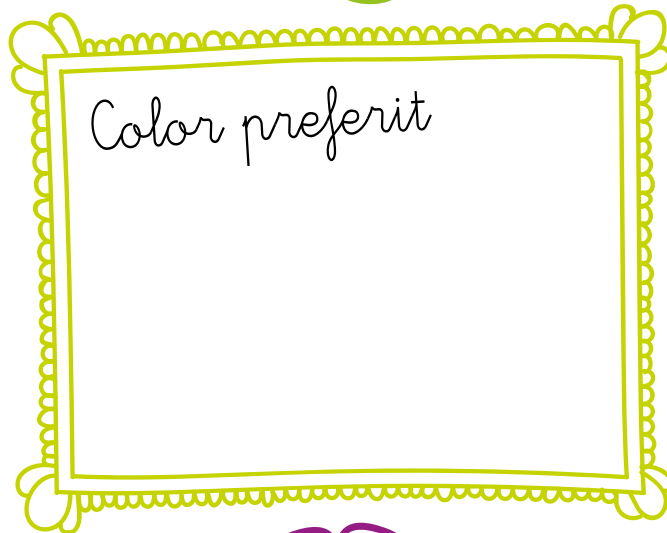 Color preferit